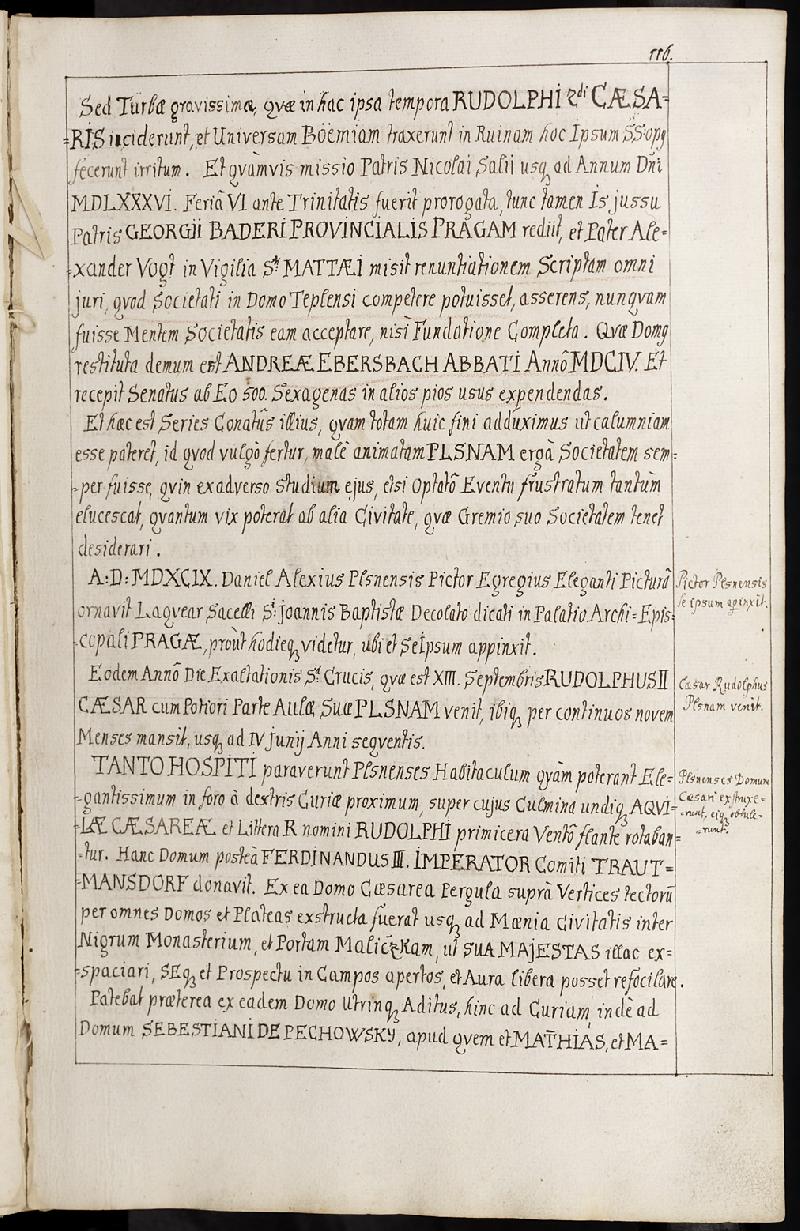 116.
Sed Turbæ gravissimæ, qvæ in hac ipsa tempora RUDOLPHI 2di CÆSA=
=RIS inciderunt, et Universam Boëmiam traxerunt in Ruinam hoc Ipsum
fecerunt irritum. Et qvamvis missio Patris Nicolai Salii usq ad Annum Dñi
MDLXXXVI. Feriâ VI ante Trinitatis fuerit prorogata, tunc tamen Is jussu
Patris GEORGII BADERI PROVINCIALIS PRAGAM rediit, et Pater Ale=
=xander Vogt in Vigilia St MATTÆI misit renuntiationem Scriptam omni
juri, qvod Societati in Domo Teplensi competere potuisset, asserens, nunqvam
fuisse Mentem Societatis eam acceptare, nisi Fundatione Completa. Qvæ Domg
restituta demum est ANDREÆ EBERSBACH ABBATI Annô MDCIV. Et
recepit Senatus ab Eo 500. Sexagenas in alios pios usus expendendas.
Et hæc est Series Conatûs illius, qvam totam huic fini adduximus ut calumniam
esse pateret, id qvod vulgò fertur, malè animatam PLSNAM ergà Societatem sem=
=per fuisse, qvin ex adverso Studium ejus, etsi Optatô Eventu frustratum tantùm
elucescat, qvantum vix poterat ab alia Civitate, qvæ Gremio suo Societatem tenet
desiderari.
A: D: MDXCIX. Daniel Alexius Plsnensis Pictor Egregius Eleganti Picturâ
ornavit Laqvear Sacelli St Joannis Baptistæ Decolato dicati in Palatio Archi=Epis=
=copali PRAGÆ, proùt hodieq videtur, ubi et Seipsum appinxit.
Pictor Plsnensis
se ipsum apinxit.
Eodem Annô Die Exaltationis St Crucis, qvæ est XIII. Septembris RUDOLPHUS II
CÆSAR cum Potiori Parte Aulæ Suæ PLSNAM venit, ibiq per continuos novem
Menses mansit, usq ad IV Junij Anni seqventis.
Cæsar Rudolphus
Plsnam venit.
TANTO HOSPITI paraverunt Plsnenses Habitaculum qvàm poterant Ele=
=gantissimum in foro à dextris Curiæ proximum, super cujus Culmina undiq AQVI=
=LÆ CÆSAREÆ et Littera R nomini RUDOLPHI primicera Ventô flante rotaban=
=tur. Hanc Domum posteà FERDINANDUS III. IMPERATOR Comiti TRAUT=
=MANSDORF donavit. Ex ea Domo Cæsarea Pergula suprà Vertices tectorũ
per omnes Domos et Plateas exstructa fuerat usq ad Mænia Civitatis inter
Nigrum Monasterium, et Portam Maliczkam, ut SUA MAJESTAS illac ex=
=spaciari, SEq et Prospectu in Campos apertos, et Aura libera posset refocilare.
Plsnenses Domum
Cæsari exstruxe=
=runt, eiq obtule=
=runt.
Patebat præterea ex eadem Domo utrinq Aditus, hinc ad Curiam, indè ad
Domum SEBESTIANI DE PECHOWSKY, apud qvem et MATHIAS, et MA=